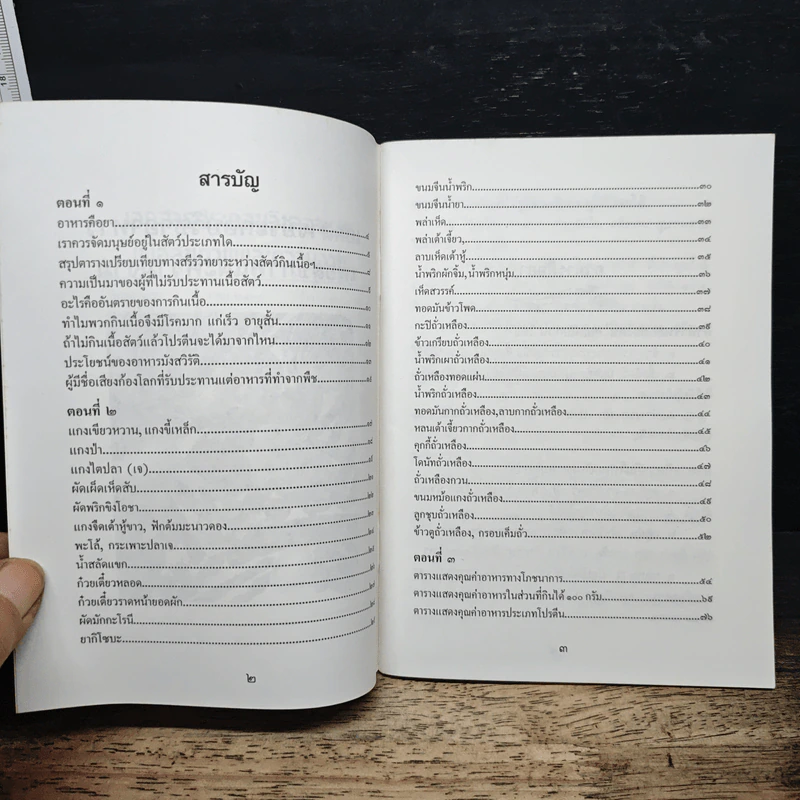 สารบัญ
ตอนที่ ๑
อาหารคือยา
เราควรจัดมนุษย์อยู่ในสัตว์ประเภทใด
สรุปตารางเปรียบเทียบทางสรีรวิทยาระหว่างสัตว์กินเนื้อฯ
ความเป็นมาของผู้ที่ไม่รับประทานเนื้อสัตว์
อะไรคืออันตรายของการกินเนื้อ
ทำไมพวกกินเนื้อจึงมีโรคมาก แก่เร็ว อายุสั้น
ถ้าไม่กินเนื้อสัตว์แล้วโปรตีนจะได้มาจากไหน
ประโยชน์ของอาหารมังสวิรัติ
ผู้มีชื่อเสียงก้องโลกที่รับประทานแต่อาหารที่ทำจากพืช
ตอนที่ ๒
แกงเขียวหวาน, แกงขี้เหล็ก
แกงป่า
แกงไตปลา (เจ)
ผัดเผ็ดเห็ดสับ
ผัดพริกขิงโอชา
แกงจืดเต้าหู้ขาว, ฟักต้มมะนาวดอง
พะโล้, กระเพาะปลาเจ
น้ำสลัดแขก
ก๋วยเตี๋ยวหลอด
ก๋วยเตี๋ยวราดหน้ายอดผัก
ผัดมักกะโรนี
ยากิโซบะ
๒
ขนมจีนน้ำพริก ๓๐
ขนมจีนน้ำยา ๓๒
พล่าเห็ด ๓๓
พล่าเต้าเจี้ยว, ๓๔
ลาบเห็ดเต้าหู้ ๓๕
น้ำพริกผักจิ้ม, น้ำพริกหนุ่ม ๓๖
เห็ดสวรรค์ ๓๗
ทอดมันข้าวโพด ๓๘
กะปิถั่วเหลือง ๓๙
ข้าวเกรียบถั่วเหลือง ๔๐
น้ำพริกเผาถั่วเหลือง ๔๑
ถั่วเหลืองทอดแผ่น ๔๒
น้ำพริกถั่วเหลือง ๔๓
ทอดมันกากถั่วเหลือง,ลาบกากถั่วเหลือง ๔๔
หลนเต้าเจี้ยวกากถั่วเหลือง ๔๕
คุกกี้ถั่วเหลือง ๔๖
โดนัทถั่วเหลือง ๔๗
ถั่วเหลืองกวน ๔๘
ขนมหม้อแกงถั่วเหลือง ๔๙
ลูกชุบถั่วเหลือง ๕๐
ข้าวตูถั่วเหลือง, กรอบเค็มถั่ว ๕๒
ตอนที่ ๓
ตารางแสดงคุณค่าอาหารทางโภชนาการ ๕๔
ตารางแสดงคุณค่าอาหารในส่วนที่กินได้ ๑๐๐ กรัม ๖๕
ตารางแสดงคุณค่าอาหารประเภทโปรตีน ๗๖
๓